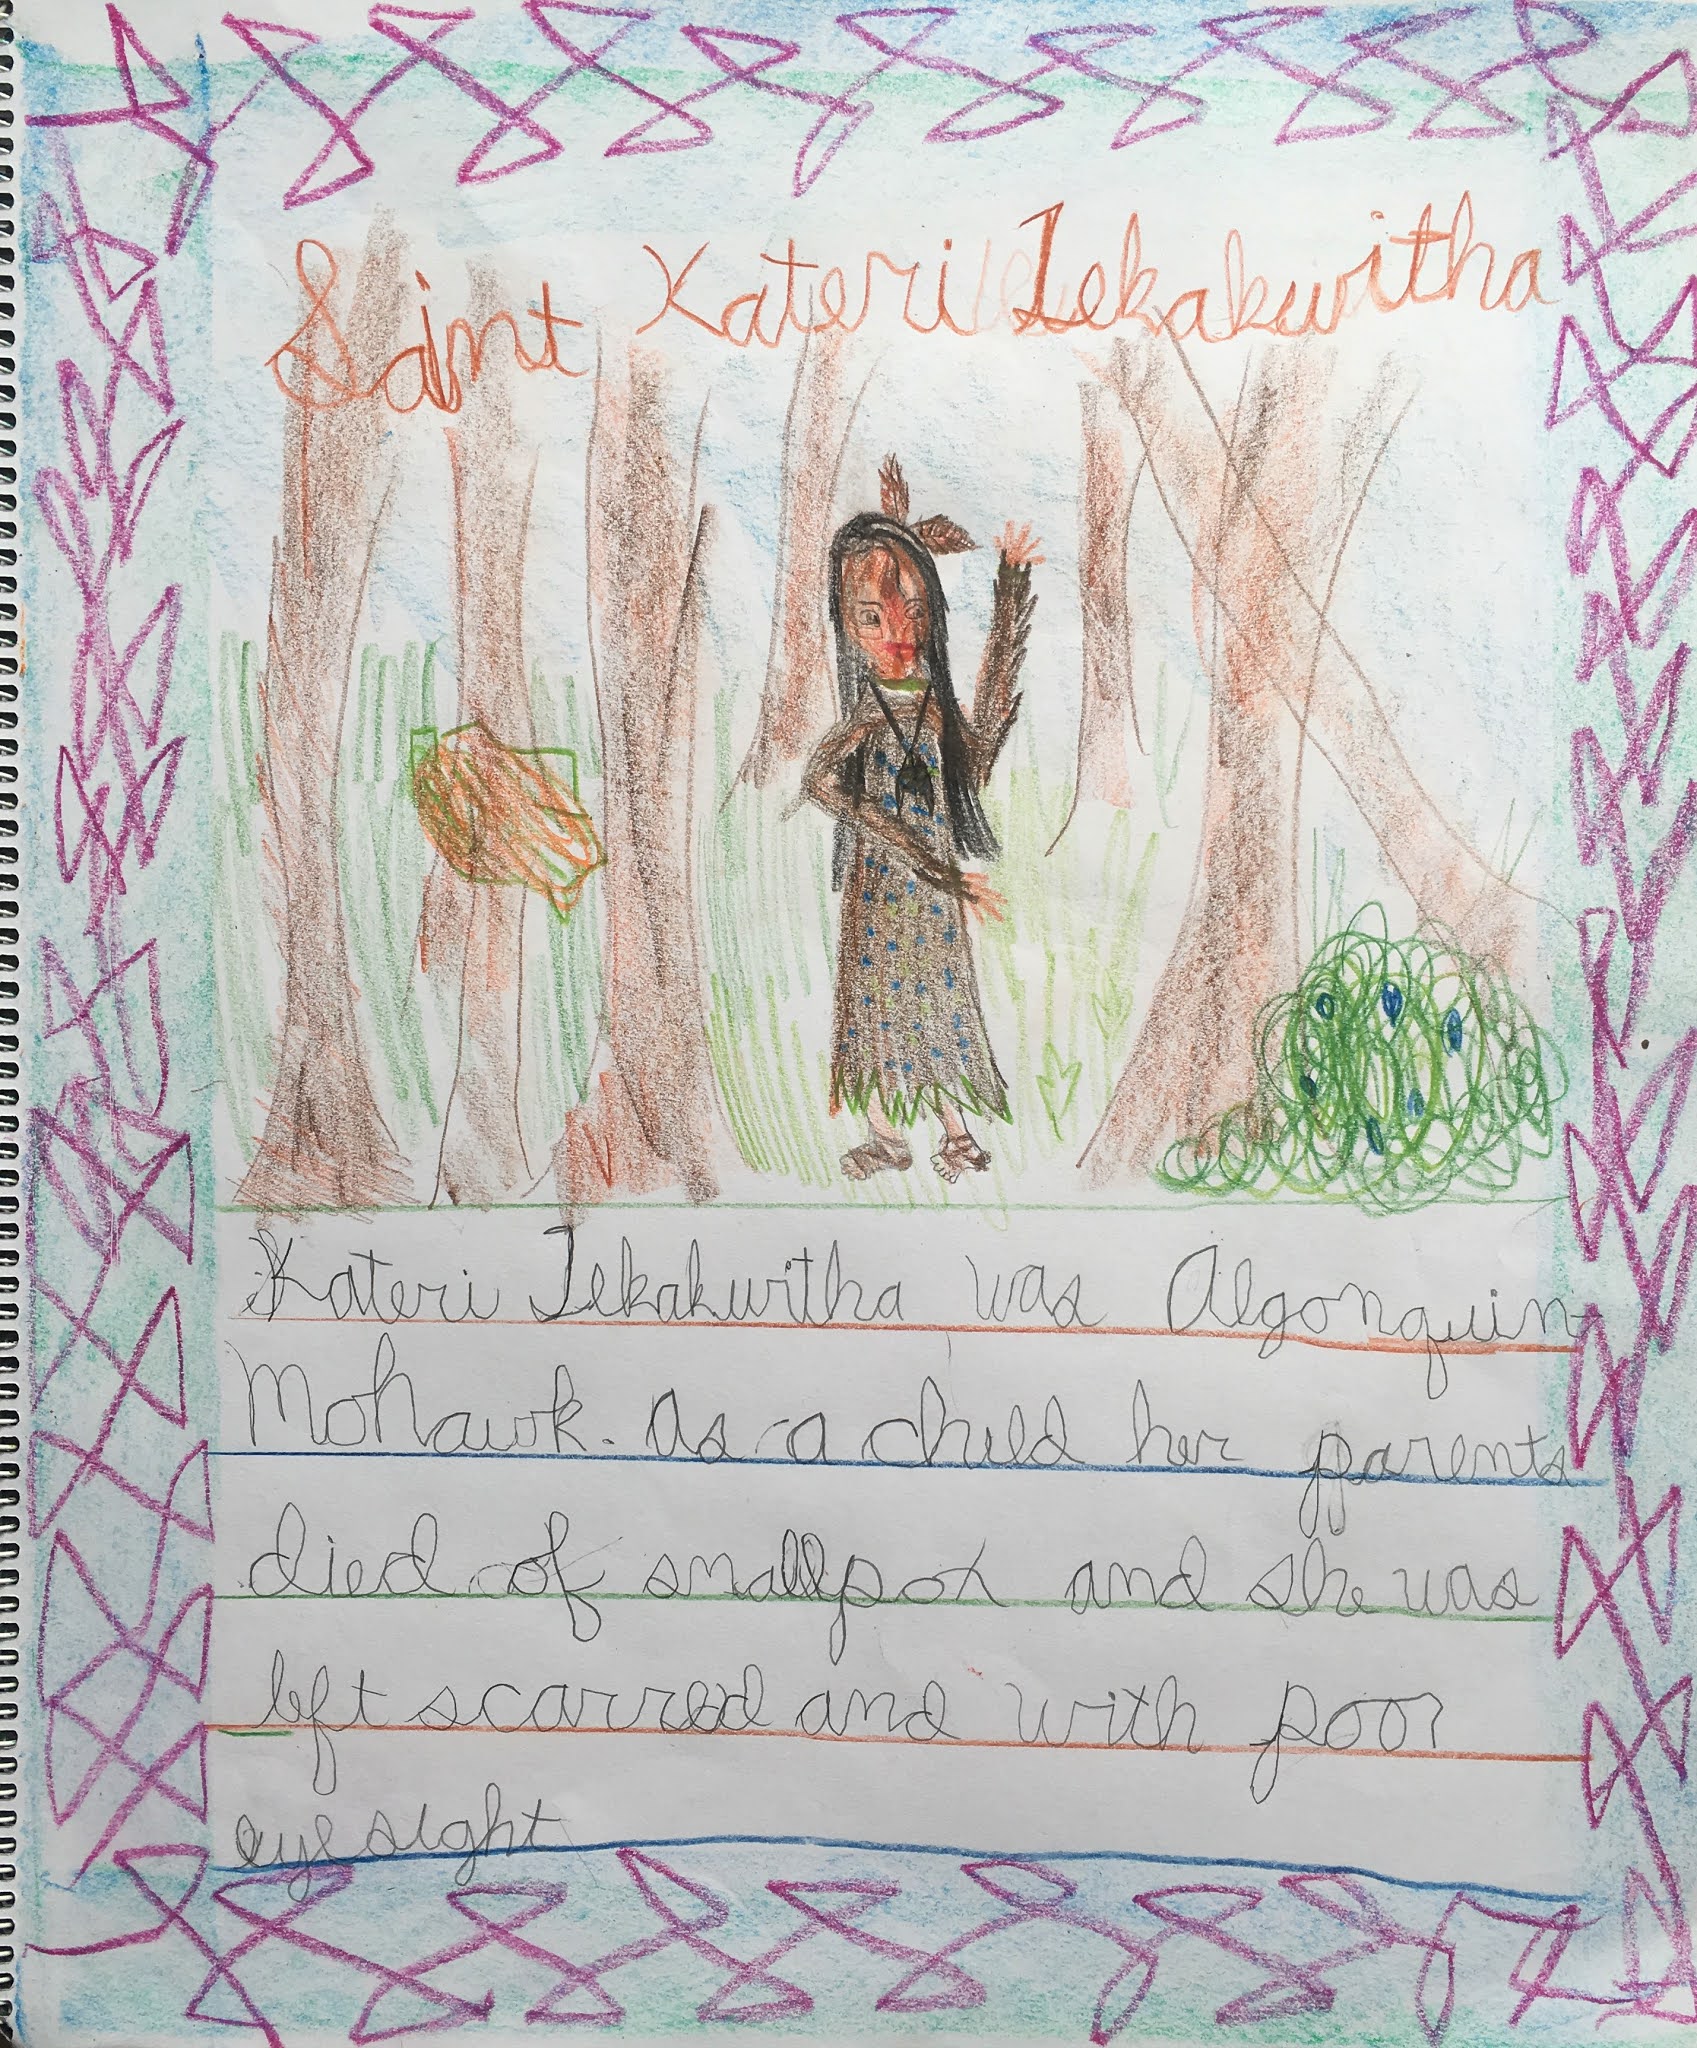 Saint Kateri Tekakwitha
Kateri Tekakwitha was Algonquin
Mohawk. as a child her parents
died of smallpox and she was
left scarred and with poor
eyesight